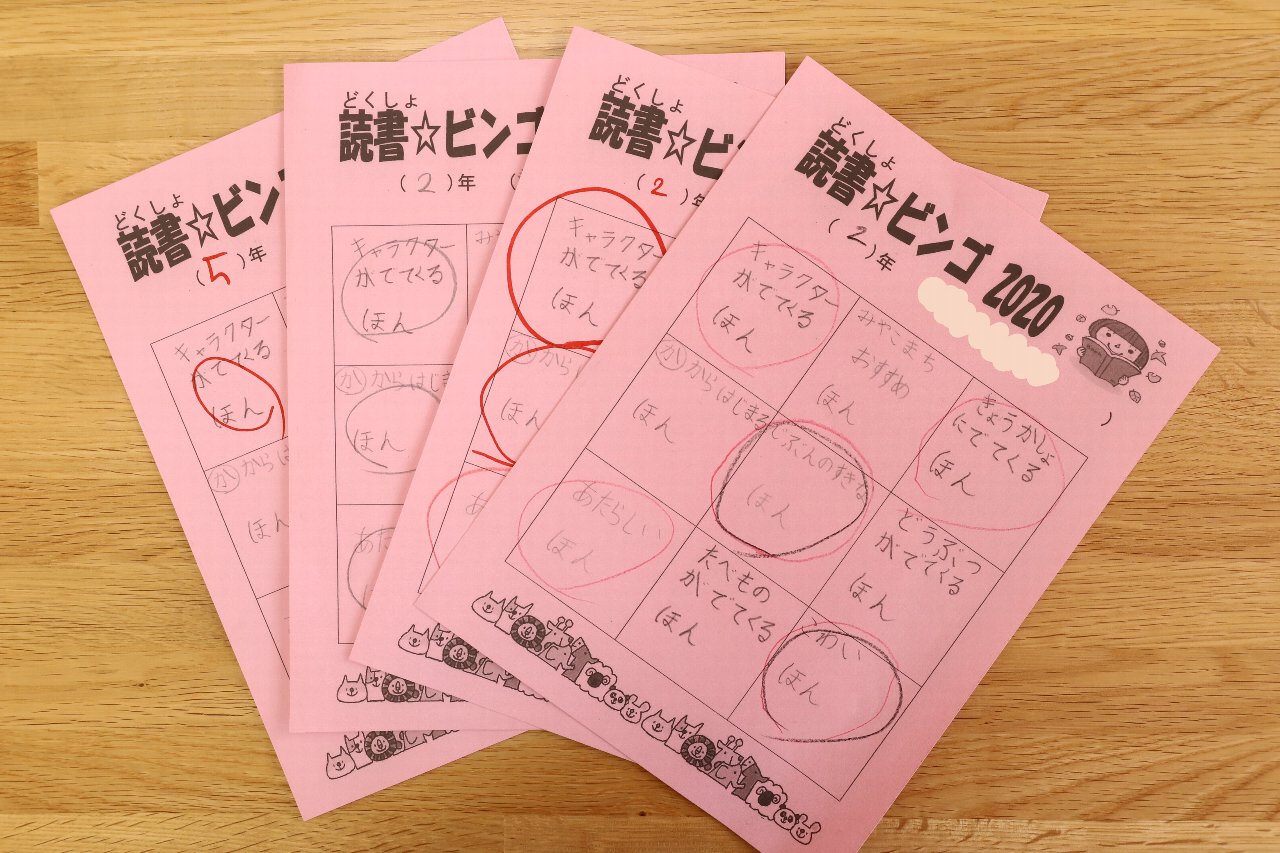 どくしょ
読書☆ビン
(5)年
キャラクター
がでてくる
ほん
か から
ほん
どくしょ
読書☆ビンゴ
(2)年 (
キャラクター
がでてくる
ほん
か からはじま
ほん
あた
どくしょ
読書☆ビ
(2)年
キャラクター
がでてくる
ほん
か から
ほん
あ
どくしょ
読書☆ビンゴ 2020
(2)年 )
キャラクター
がでてくる
ほん
みやこまち
おすすめ
ほん
きょうかしょ
にでてくる
ほん
か からはじまる
ほん
じぶんのすきな
ほん
どうぶつ
がでてくる
ほん
あたらしい
ほん
たべもの
がでてくる
ほん
ほん